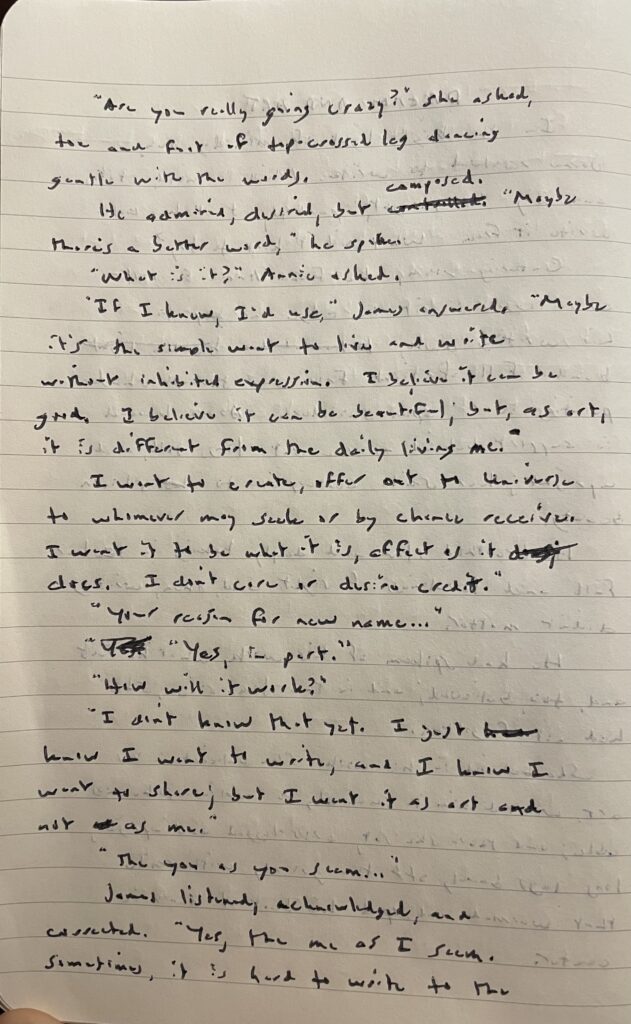 "Are you really going crazy?" she asked,
toe and foot of top-crossed leg dancing
gentle with the words.
composed.
He admired, desired, but controlled. "Maybe
there's a better word," he spoke.
"What is it?" Annie asked.
"If I knew, I'd use," James answered. "Maybe
it's the simple want to live and write
without inhibited expression. I believe it can be
good. I believe it can be beautiful; but, as art,
it is different from the daily living me."
I want to create, offer out to Universe
to whomever may seek or by chance receive.
I want it to be what it is, affect as it
does. I don't care or desire credit."
"Your reason for new name..."
"Yes "Yes, in part."
"How will it work?"
"I don't know that yet. I just
know I want to write, and I know I
want to share; but I want it as art and
not as me."
"The you as you seem..."
James listened, acknowledged, and
corrected. "Yes, the me as I seem.
Sometimes, it is hard to write to the